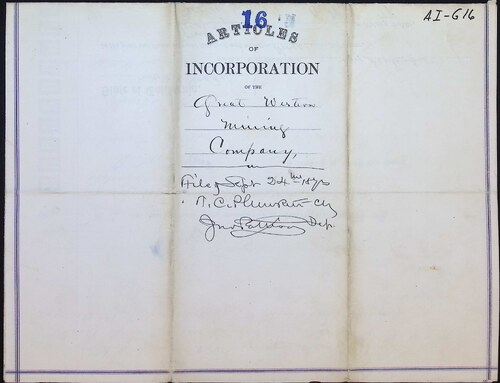 16
AI-G16
ARTICLES
OF
INCORPORATION
OF THE
Great Western
Mining
Company,
Filed Sept 24th 18
T. C. Plunket Clk
Jno Dep.